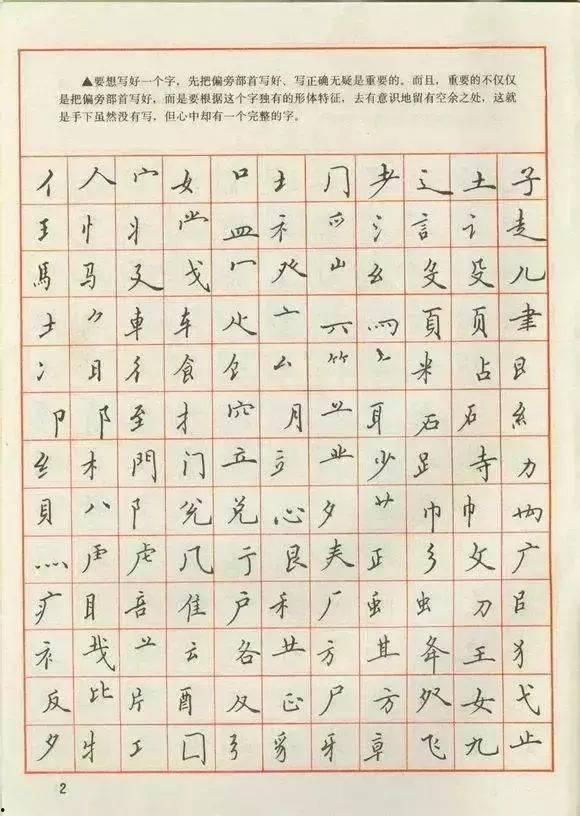 ▲要想写好一个字，先把偏旁部首写好、写正确无疑是重要的。而且，重要的不仅仅
是把偏旁部首写好，而是要根据这个字独有的形体特征，去有意识地留有空余之处，这就
是手下虽然没有写，但心中却有一个完整的字。
亻 人 宀 女 口 土 门 耂 辶 土 子
王 忄 丬 龸 皿 礻 爫 氵 言 讠 走
馬 马 廴 戈 冖 癶 山 幺 殳 儿
车 車 亠 罒 頁 页 聿
冫 日 彳 食 饣 厶 米 占
卩 阝 至 扌 穴 月 耳 石 石 糹
纟 木 門 门 立 业 少 寺 力
貝 八 阝 兑 心 夕 艹 巾 巾
灬 虍 几 亍 艮 夫 正 彡 攵 广
疒 目 咅 隹 户 禾 厂 虫 刀
衤 云 各 方 其 夅 王 犭
反 比 片 酉 及 尸 方 女 弋
夕 牛 工 囗 弓 豸 牙 章 飞 九 止
2